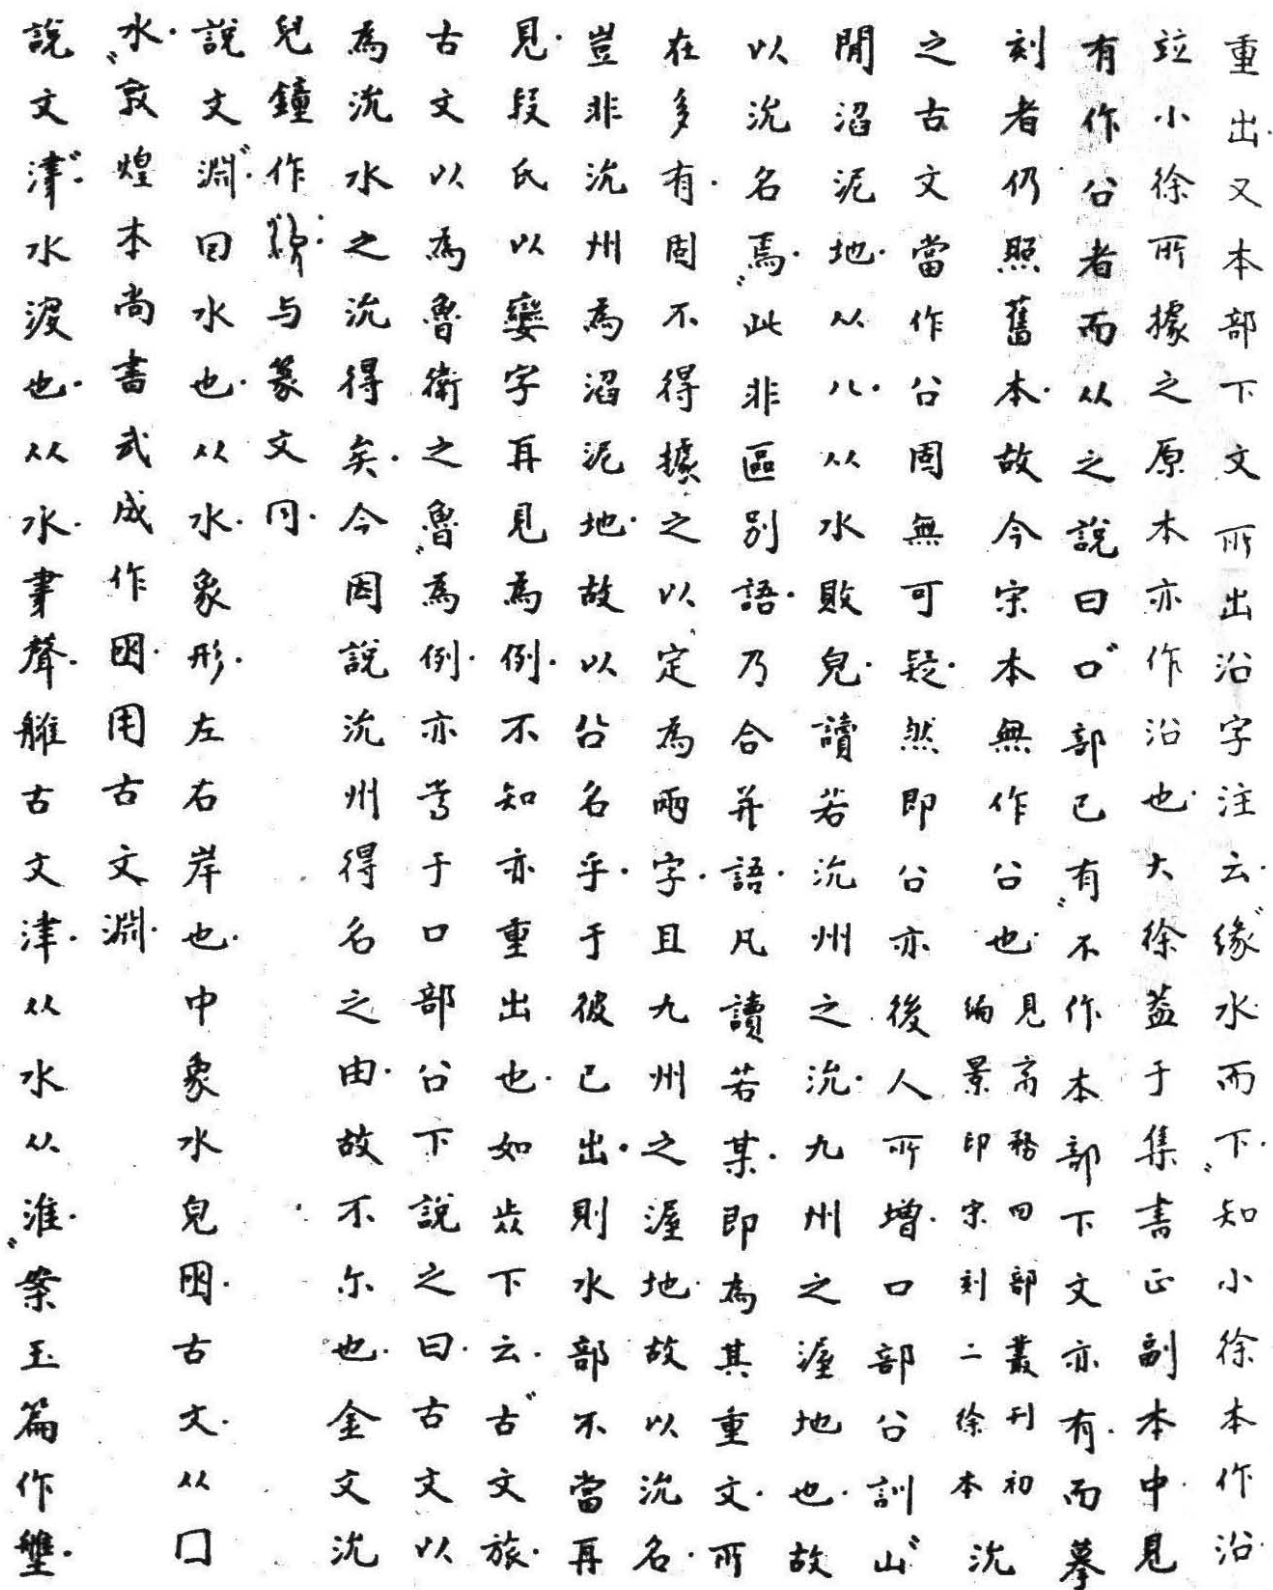 重出.又本部下文所出沿字注云.“緣水而下.”知小徐本作沿.
竝小徐所據之原本亦作沿也.大徐蓋于集書正副本中.見
有作㕣者而从之.說曰“口部已有”不作本部下文亦有.而摹
刻者仍照舊本.故今宋本無作㕣也.見商務四部叢刊初編景印宋刻二徐本沇
之古文當作㕣固無可疑.然即㕣亦後人所增.口部㕣訓“山
閒淊泥地.从八.从水敗皃.讀若沇州之沇.九州之渥地也.故
以沇名焉.”此非區別語.乃合并語.凡讀若某.即為其重文.所
在多有.固不得據之以定為兩字.且九州之渥地.故以沇名.
豈非沇州為淊泥地.故以㕣名乎.于彼已出.則水部不當再
見.段氏以㜻字再見為例.不知亦重出也.如㫃下云.“古文旅.
古文以為魯衛之魯”為例.亦當于口部㕣下說之曰.古文以
為沇水之沇得矣.今因說沇州得名之由.故不尔也.金文沇
兒鐘作.与篆文同.
說文“淵.回水也.从水.象形.左右岸也.中象水皃.𡆶.古文.从囗
水.”敦煌本尚書武成作𡆶.用古文淵.
說文“津.水渡也.从水.𦘔聲.𦩻古文津.从水从淮.”案玉篇作𨿕.